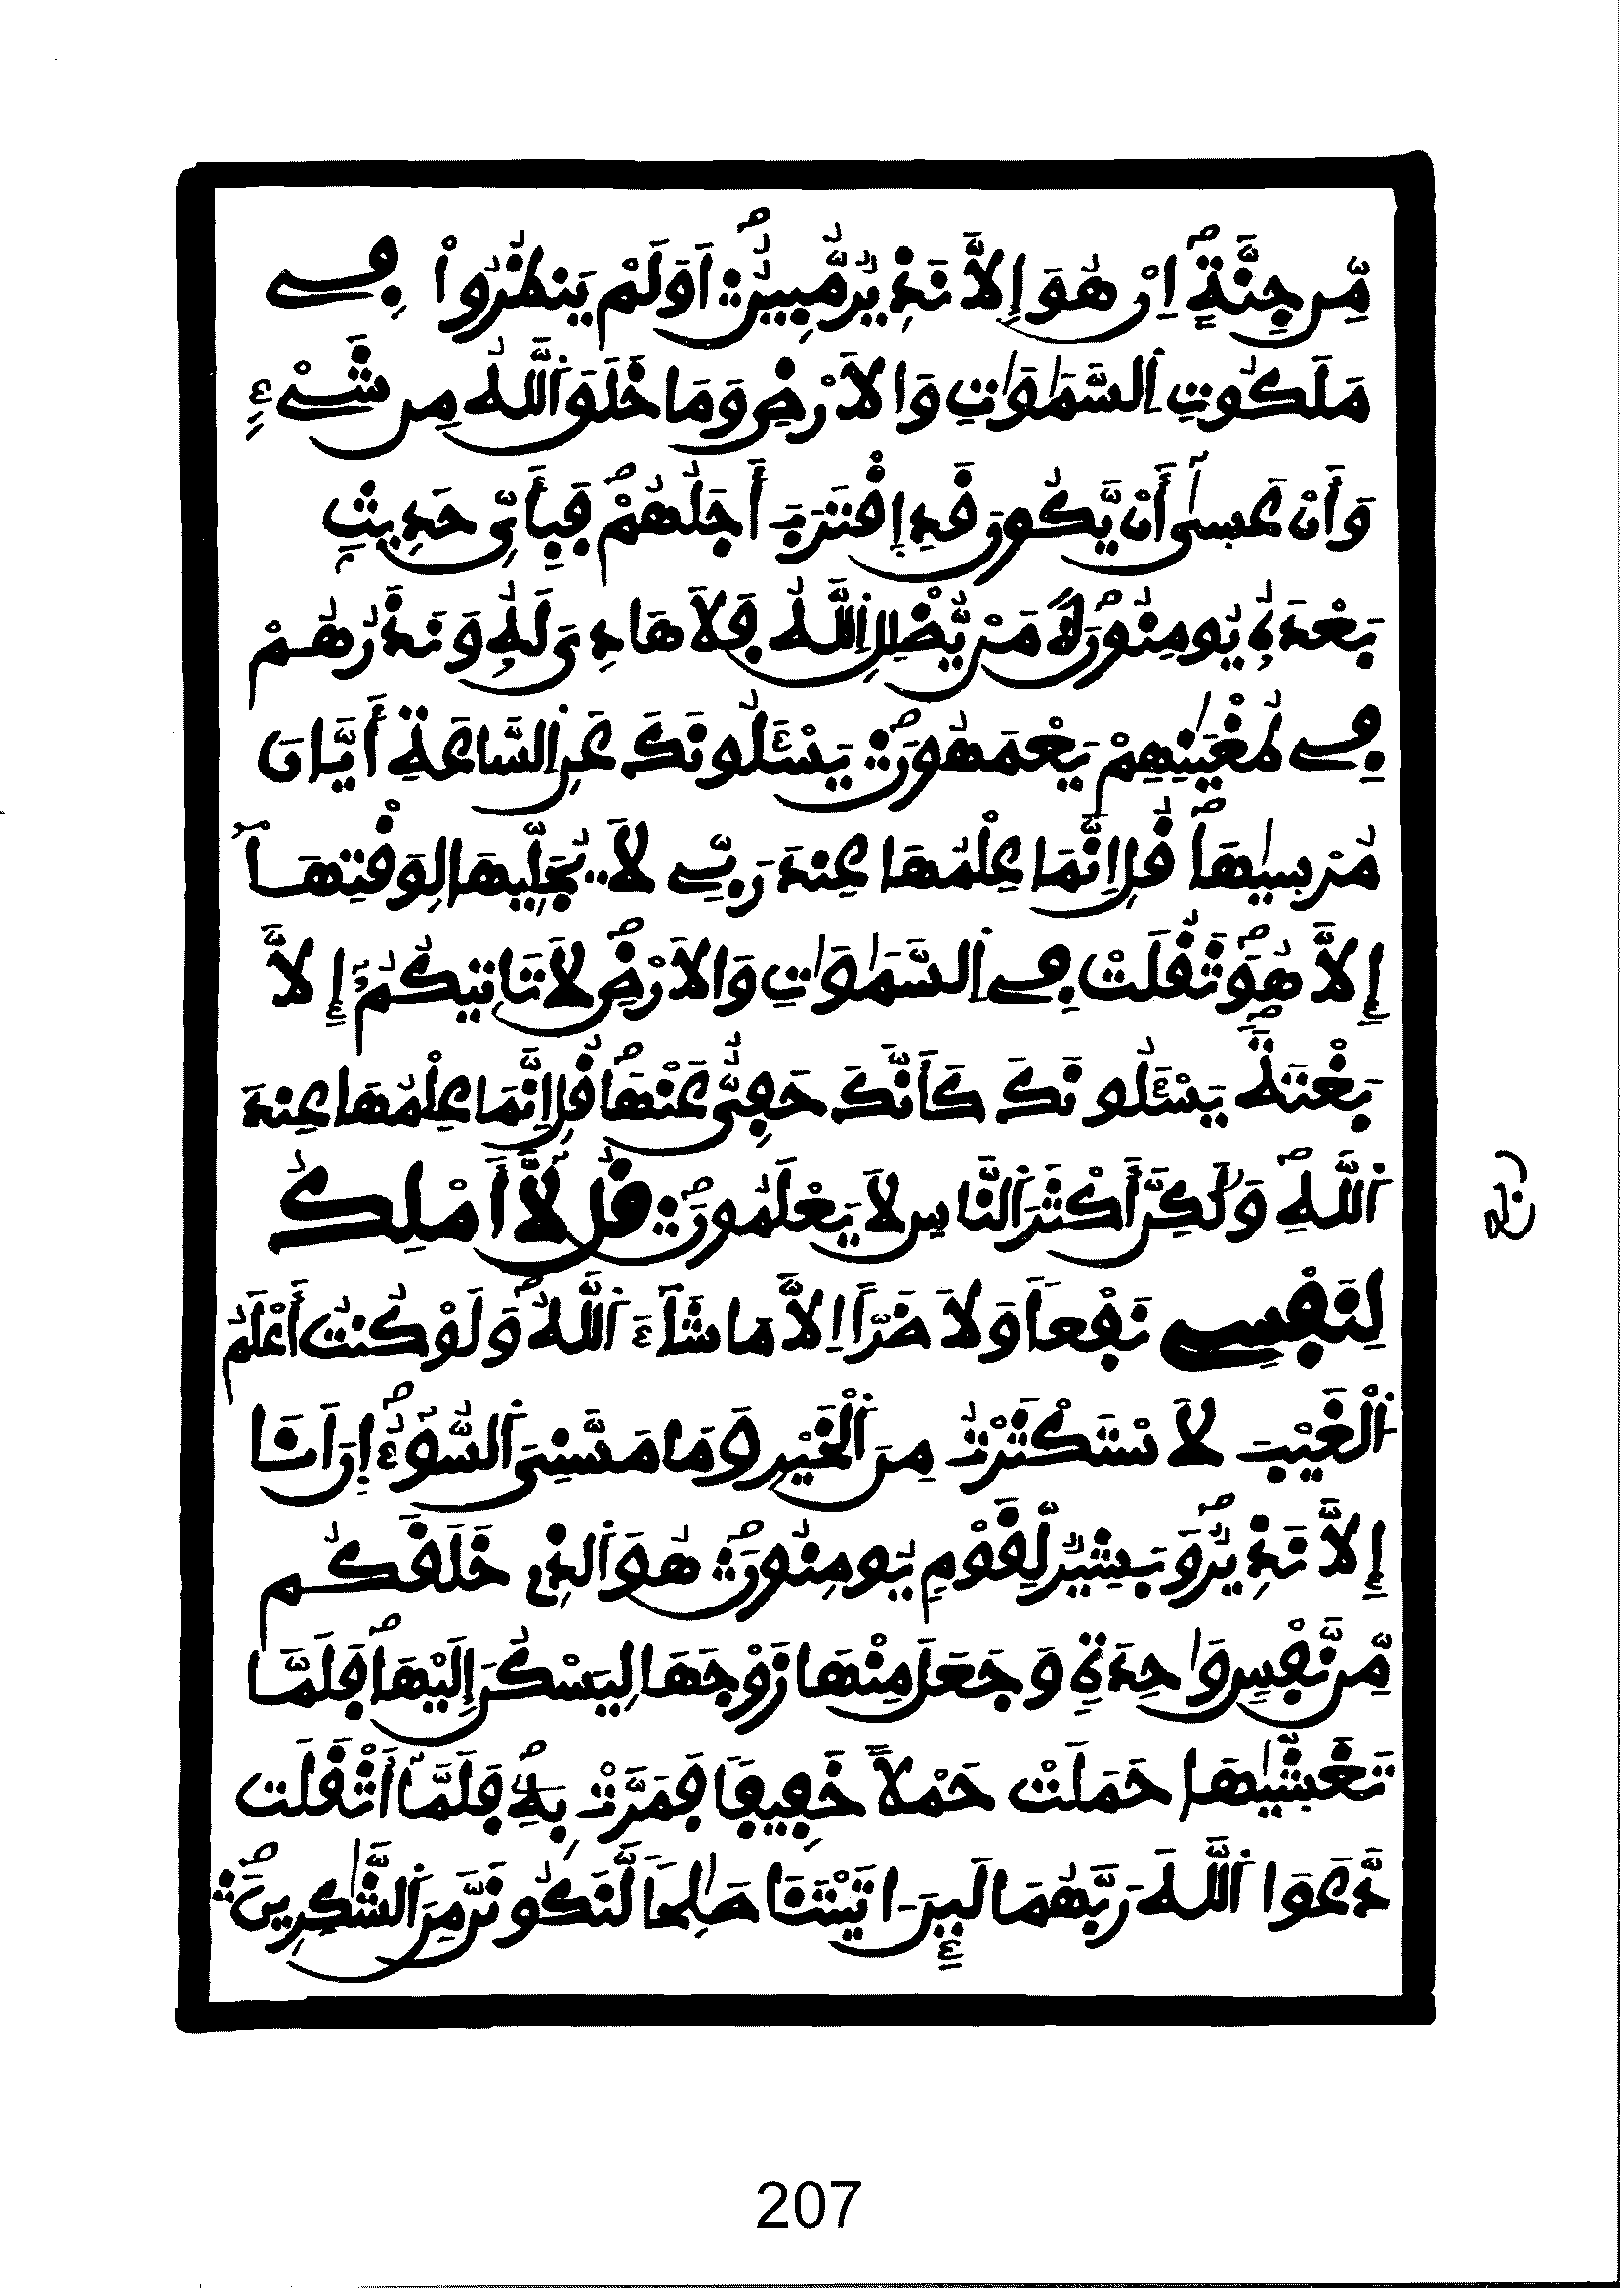 مِّن جِنَّةٍ اِنْ هُوَ إِلاَّ نَذِيرٌ مُّبِينٌ اَوَلَمْ يَنظُرُواْ فِے
مَلَكُوتِ اِ۬لسَّمَٰوَٰتِ وَالاَرْضِ وَمَا خَلَقَ اَ۬للَّهُ مِن شَےْءٍ
وَأَنْ عَسٜىٰٓ أَنْ يَّكُونَ قَدِ اِ۪قْتَرَبَ أَجَلُهُمْ فَبِأَيِّ حَدِيثِۢ
بَعْدَهُۥ يُومِنُونَ مَنْ يُّضْلِلِ اِ۬للَّهُ فَلاَ هَادِيَ لَهُۥ وَنَذَرُهُمْ
فِے طُغْيَٰنِهِمْ يَعْمَهُونَ يَسْـَٔلُونَكَ عَنِ اِ۬لسَّاعَةِ أَيَّانَ
مُرْسٜيٰهَا قُلِ اِنَّمَا عِلْمُهَا عِندَ رَبِّے لاَ يُجَلِّيهَا لِوَقْتِهَآ
إِلاَّ هُوَ ثَقُلَتْ فِے اِ۬لسَّمَٰوَٰتِ وَالاَرْضِ لاَ تَاتِيكُمُۥٓ إِلاَّ
بَغْتَةً يَسْـَٔلُونَكَ كَأَنَّكَ حَفِيٌّ عَنْهَا قُلِ اِنَّمَا عِلْمُهَا عِندَ
اَ۬للَّهِ وَلَٰكِنَّ أَكْثَرَ اَ۬لنَّاسِ لاَ يَعْلَمُونَ قُل لَّآ أَمْلِكُ
لِنَفْسِے نَفْعاً وَلاَ ضَرّاً اِلاَّ مَا شَآءَ اَ۬للَّهُ وَلَوْ كُنتُ أَعْلَمُ
اُ۬لْغَيْبَ لاَسْتَكْثَرْتُ مِنَ اَ۬لْخَيْرِ وَمَا مَسَّنِيَ اَ۬لسُّوٓءُ اِنَ اَنَا
إِلاَّ نَذِيرٌ وَبَشِيرٌ لِّقَوْمٍ يُومِنُونَ هُوَ اَ۬لذِے خَلَقَكُم
مِّن نَّفْسٍ وَٰحِدَةٍ وَجَعَلَ مِنْهَا زَوْجَهَا لِيَسْكُنَ إِلَيْهَا فَلَمَّا
تَغَشّٜيٰهَا حَمَلَتْ حَمْلاً خَفِيفاً فَمَرَّتْ بِهِۦ فَلَمَّآ أَثْقَلَت
دَّعَوَا اَ۬للَّهَ رَبَّهُمَا لَئِنَ اٰتَيْتَنَا صَٰلِحاً لَّنَكُونَنَّ مِنَ اَ۬لشَّٰكِرِينَ
207